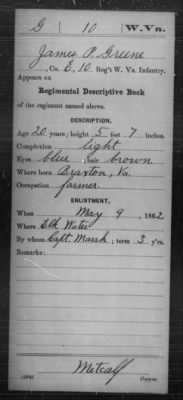 G 10 W. Va.
James P. Greene
, Co. E, 10 Reg't W. Va. Infantry.
Appears on
Regimental Descriptive Book
of the regiment named above.
DESCRIPTION.
Age 20 years; height 5 feet 7 inches.
Complexion light
Eyes blue; hair brown
Where born Braxton, Va.
Occupation farmer.
ENLISTMENT.
When May 9, 1862
Where Elk Water
By whom Capt. Marsh; term 3 y'rs.
Remarks:
Metcalf
Copyist.